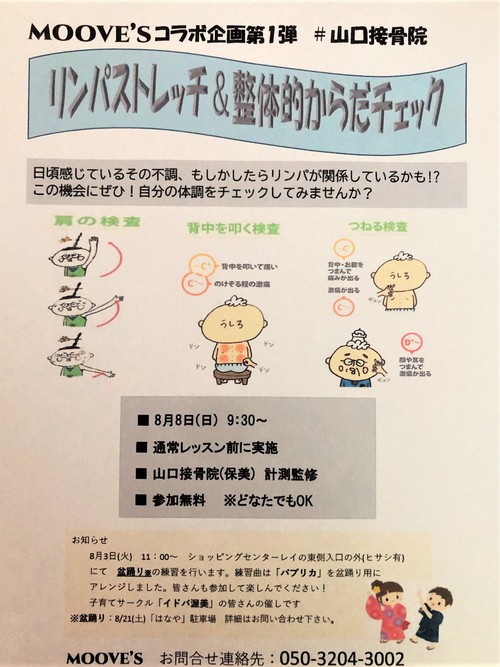 MOOVE'Sコラボ企画第1弾　＃山口接骨院
リンパストレッチ＆整体的からだチェック
日頃感じているその不調、もしかしたらリンパが関係しているかも!?
この機会にぜひ！自分の体調をチェックしてみませんか？
肩の検査
背中を叩く検査
背中を叩いて痛い
のけぞる程の激痛
うしろ
ドン
ドン
ドン
ドン
つねる検査
背中・お腹を
つまんで
痛みが出る
激痛が出る
うしろ
ギュッ
顔や耳を
つまんで
激痛が出る
■ 8月8日(日)　9:30～
■ 通常レッスン前に実施
■ 山口接骨院(保美)　計測監修
■ 参加無料　※どなたでもOK
お知らせ
8月3日(火)　11：00～　ショッピングセンターレイの東側入口の外(ヒサシ有)
にて　盆踊り※の練習を行います。練習曲は「パプリカ」を盆踊り用に
アレンジしました。皆さんも参加して楽しんでください！
子育てサークル「イドバ渥美」の皆さんの催しです
※盆踊り：8/21(土)「はなや」駐車場　詳細はお問い合わせ下さい。
MOOVE'S　お問合せ連絡先：050-3204-3002